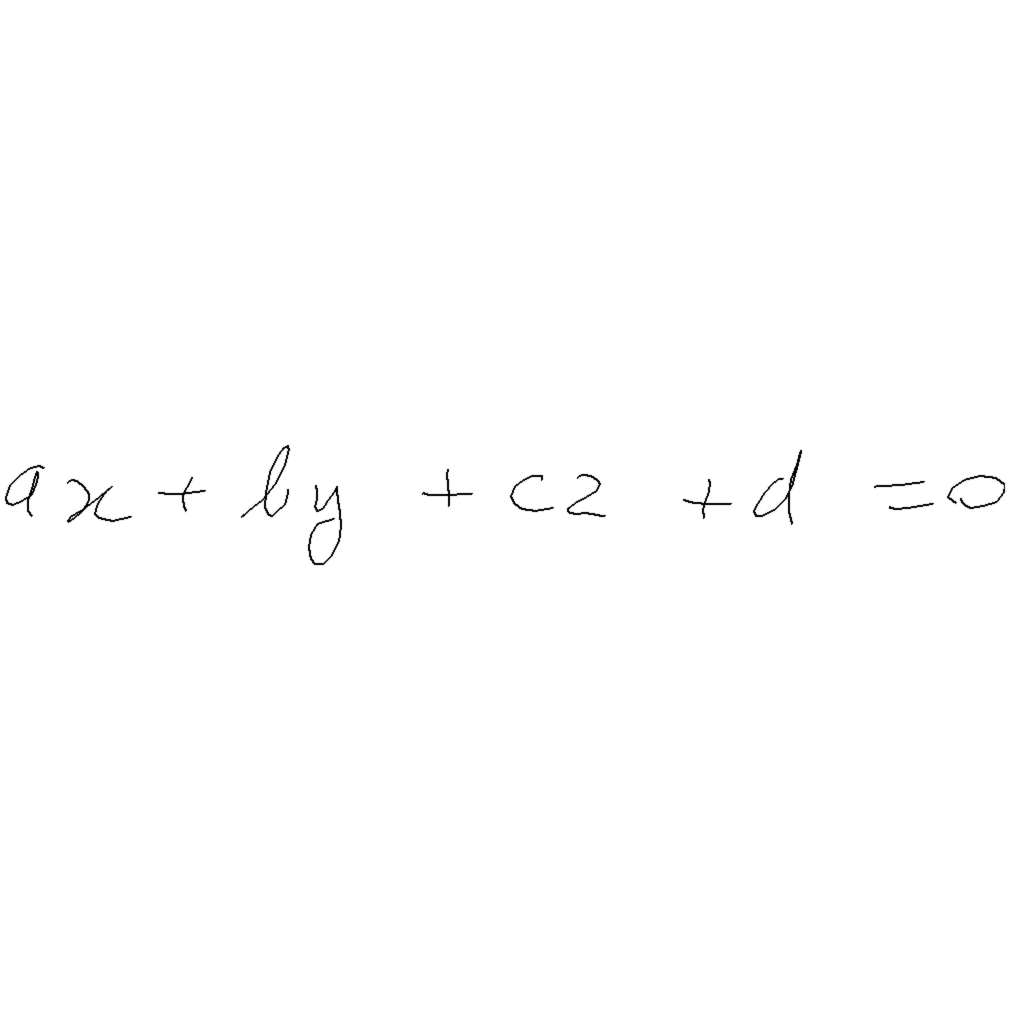 ax + by + cz + d = 0